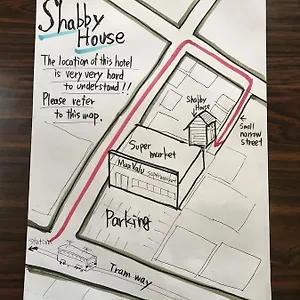 Shabby
House
The location of this hotel
is very very hard
to understand!!
Please refer
to this map.
Shabby
House
Small
narrow
street
Super
market
MaxValu supermarket
Parking
station
Tram way